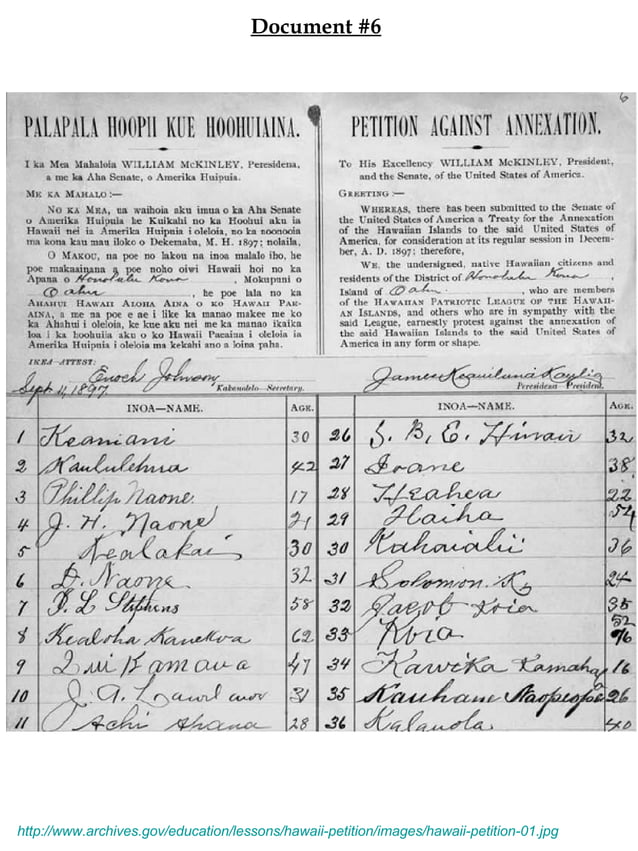 Document #6
6
PALAPALA HOOPII KUE HOOHUIAINA.
I ka Mea Mahaloia WILLIAM McKINLEY, Peresidena,
a me ka Aha Senate, o Amerika Huipuia.
ME KA MAHALO:—
NO KA MEA, ua waihoia aku imua o ka Aha Senate
o Amerika Huipuia he Kuikahi no ka Hoohui aku ia
Hawaii nei ia Amerika Huipuia i oleloia, no ka noonooia
ma kona kau mau iloko o Dekemaba, M. H. 1897; nolaila,
O MAKOU, na poe no lakou na inoa malalo iho, he
poe makaainana a poe noho oiwi Hawaii hoi no ka
Apana o Honolulu Kona, Mokupuni o
Oahu, he poe lala no ka
AHAHUI HAWAII ALOHA AINA O KO HAWAII PAE-
AINA, a me na poe e ae i like ka manao makee me ko
ka Ahahui i oleloia, ke kue aku nei me ka manao ikaika
loa i ka hoohuiia aku o ko Hawaii Paeaina i oleloia ia
Amerika Huipuia i oleloia ma kekahi ano a loina paha.
IKEA—ATTEST:
Sept 11, 1897. Enoch Johnson
Kakauolelo—Secretary.
PETITION AGAINST ANNEXATION.
To His Excellency WILLIAM McKINLEY, President,
and the Senate, of the United States of America.
GREETING:—
WHEREAS, there has been submitted to the Senate of
the United States of America a Treaty for the Annexation
of the Hawaiian Islands to the said United States of
America, for consideration at its regular session in Decem-
ber, A. D. 1897; therefore,
WE, the undersigned, native Hawaiian citizens and
residents of the District of Honolulu Kona,
Island of Oahu, who are members
of the HAWAIIAN PATRIOTIC LEAGUE OF THE HAWAII-
AN ISLANDS, and others who are in sympathy with the
said League, earnestly protest against the annexation of
the said Hawaiian Islands to the said United States of
America in any form or shape.
James Keauiluna Kaulia
Peresidena—President.
INOA—NAME. AGE.
1 Keaniani 30
2 Kaululehua 42
3 Phillip Naone 17
4 J. H. Naone 21
5 Kealakai 30
6 D. Naone 32
7 L Stephens 58
8 Kealoha 62
9 Kamaua 47
10 J. A. 31
11 Achi Ahana 28
INOA—NAME. AGE.
26 S. B. E. 32
27 Ioane 38
28 Heahea 22
29 Haiha 54
30 Kahaialii 36
31 Solomon K 24
32 Jacob Koia 35
33 Koia 52
96
34 Kawika Kamaha 16
35 Kauhane Naopeope 26
36 Kalauola 40
http://www.archives.gov/education/lessons/hawaii-petition/images/hawaii-petition-01.jpg